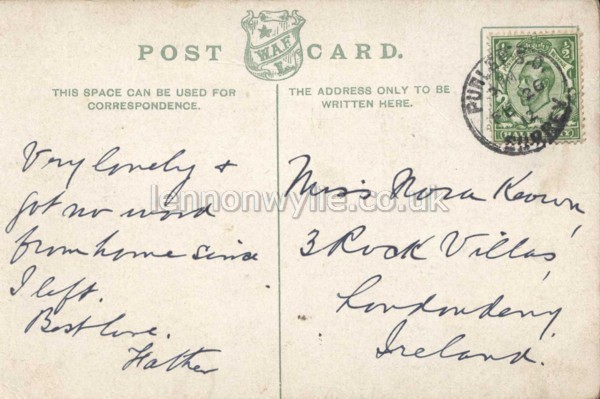 POST CARD.
W.A.F.
L.
THIS SPACE CAN BE USED FOR
CORRESPONDENCE.
THE ADDRESS ONLY TO BE
WRITTEN HERE.
PURLEY
SURREY
Very lonely &
got no word
from home since
I left.
Best love.
Father
Miss Nora Keown,
3 Rock Villas,
Londonderry
Ireland.
lennonwylie.co.uk